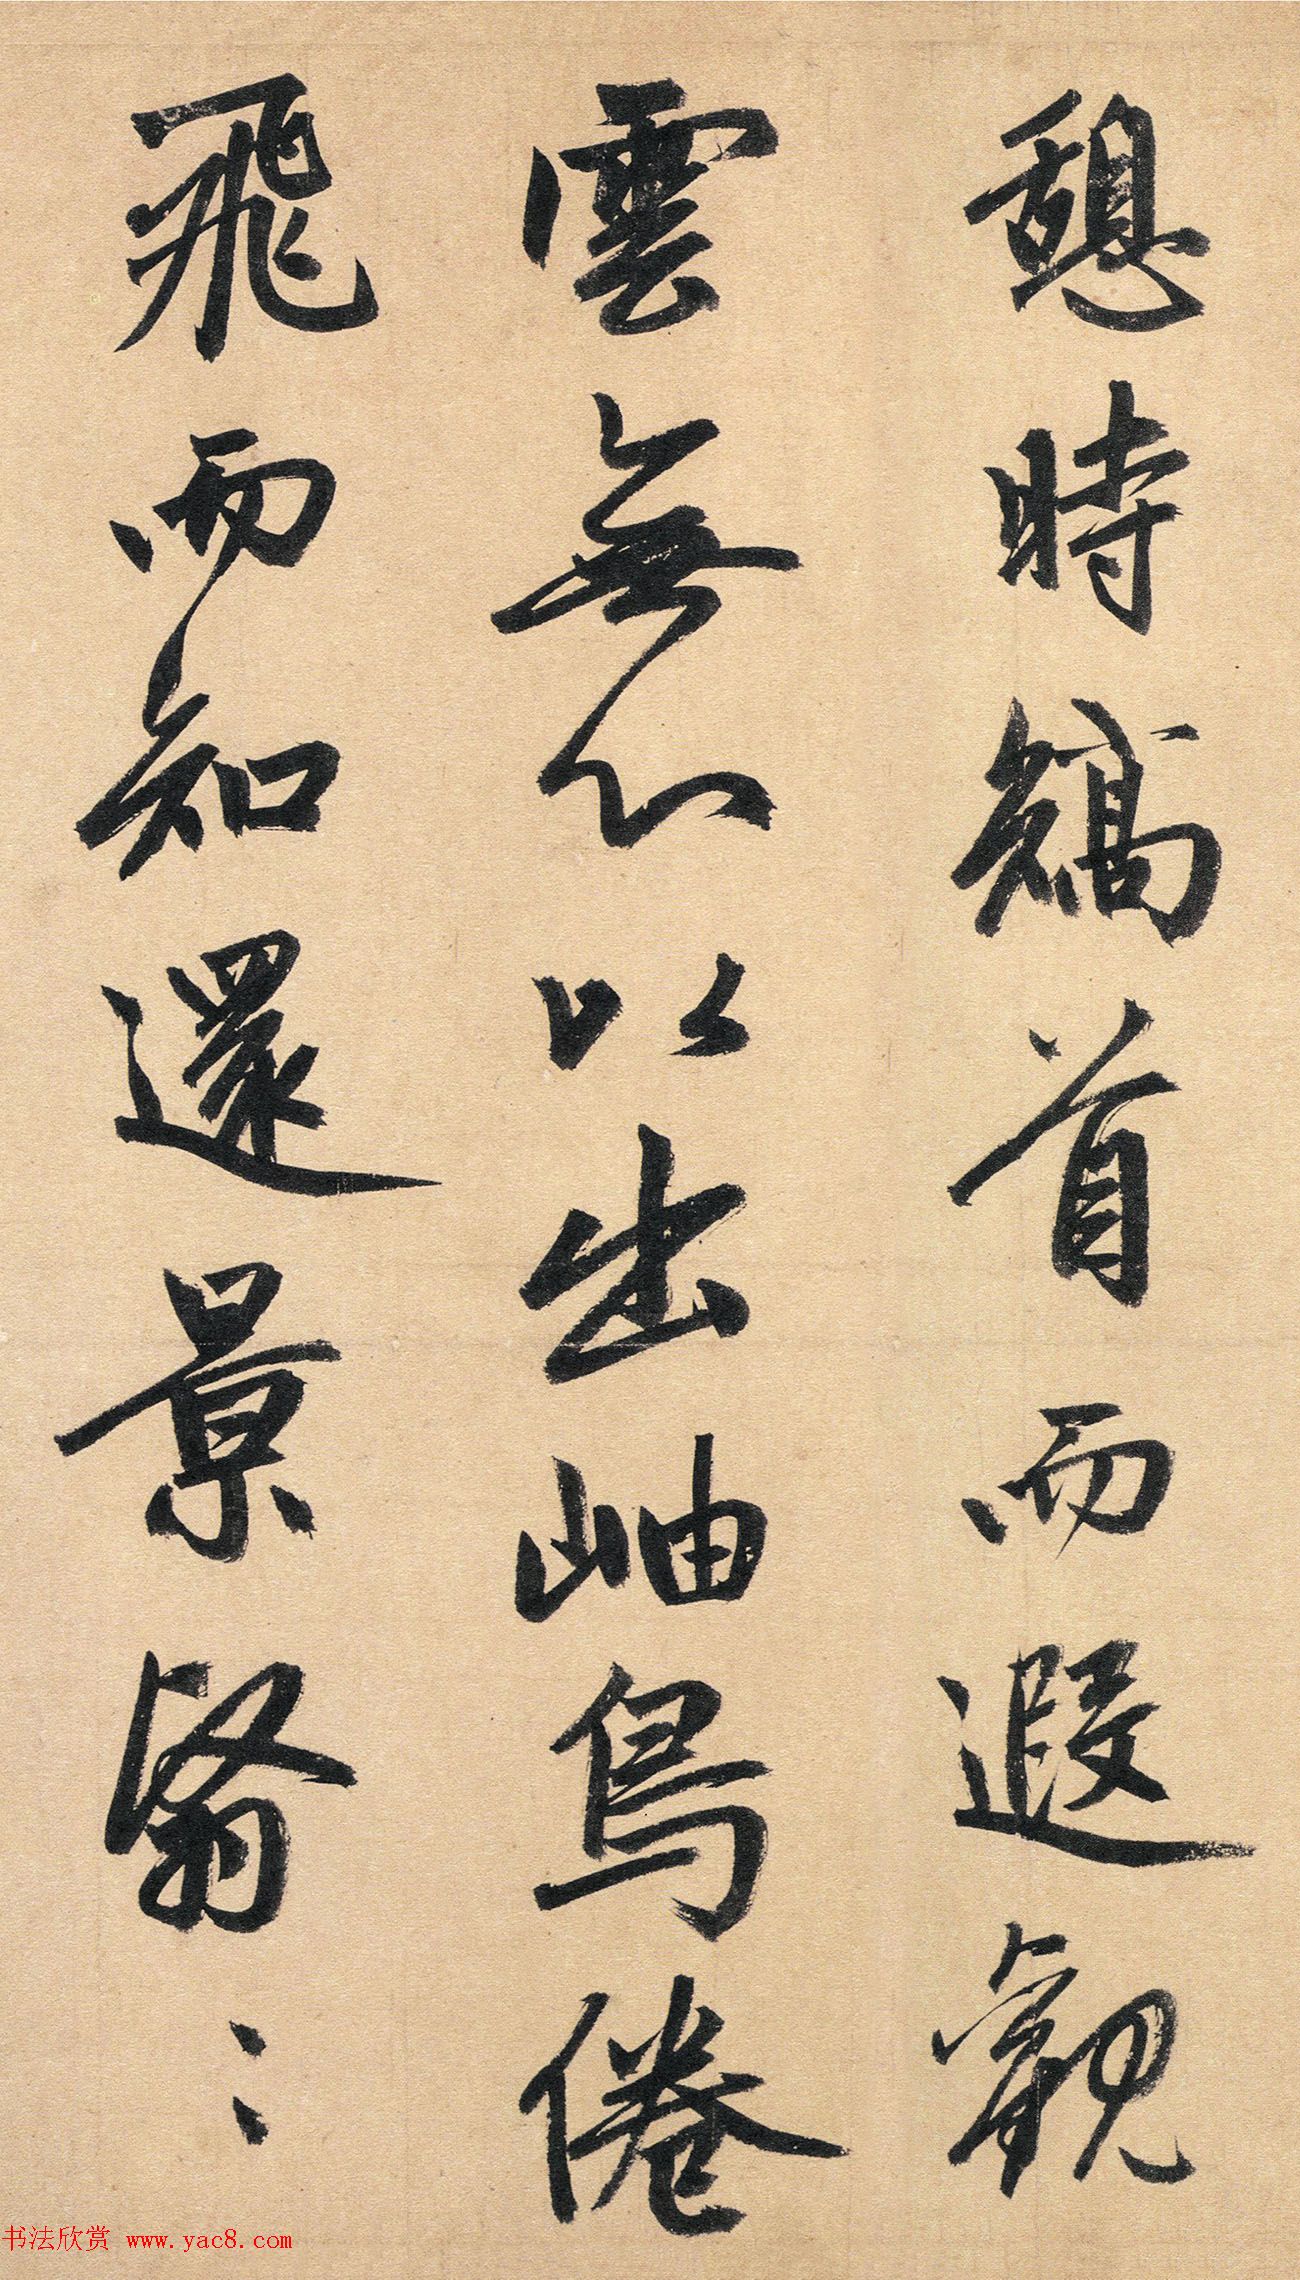 憩時矯首而遐觀
雲無心以出岫鳥倦
飛而知還景翳〻
书法欣赏 www.yac8.com